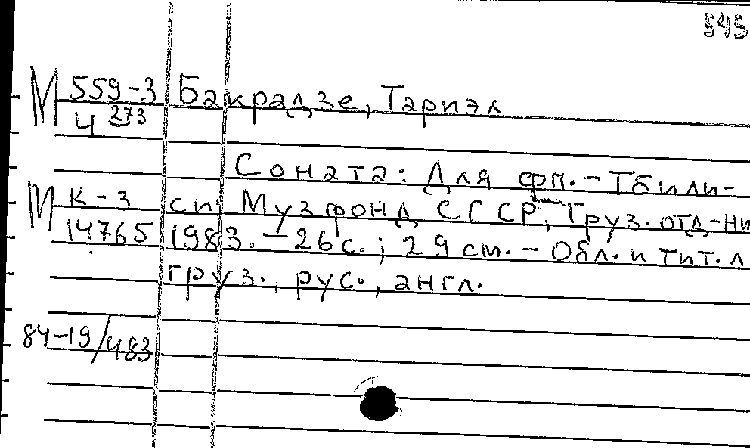 595
М 559-3 Бакрадзе, Тариэл
4 273
Соната: Для фп. - Тбили-
М К-3 си: Музфонд СССР, Груз. отд-ни
14765 1983. - 26 с.; 29 см. - Обл. и тит. л
груз., рус., англ.
84-19/483